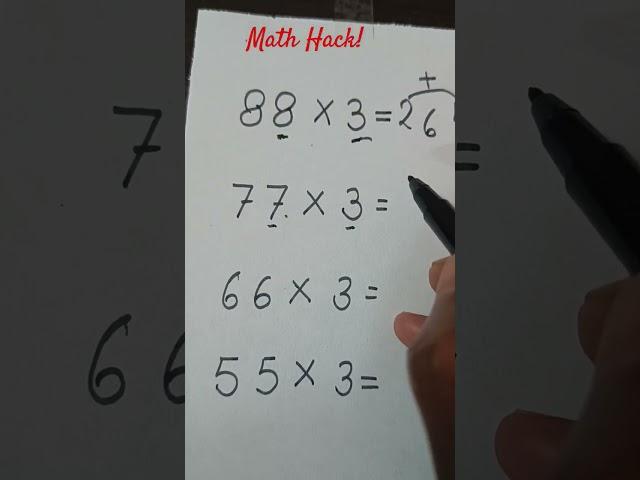 Math Hack!
88 × 3 = 26
+
77 × 3 =
66 × 3 =
55 × 3 =